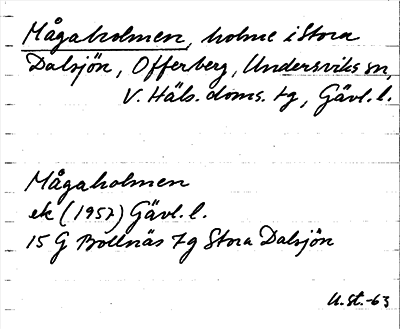 Mågaholmen, holme i Stora
Dalsjön, Offerberg, Undersviks sn,
V. Häls. doms. tg, Gävl. l.
Mågaholmen
ek (1957) Gävl. l.
15 G Bollnäs 7g Stora Dalsjön
U. St. -63